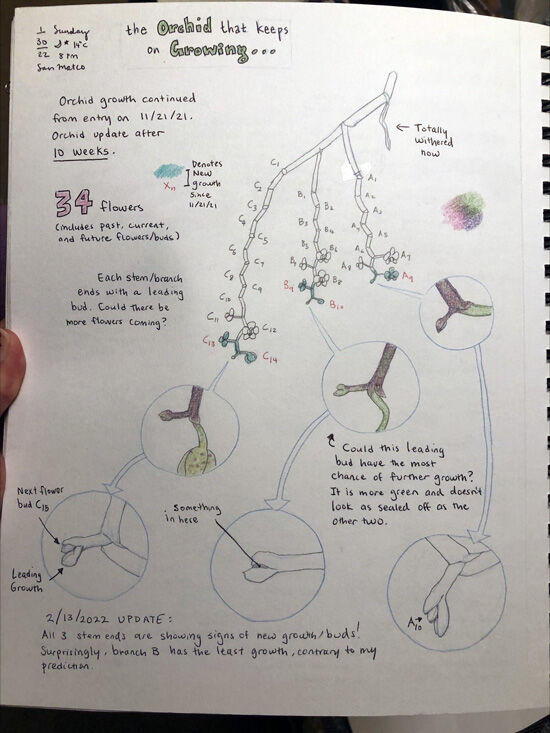 1 Sunday
30 14°C
22 8 pm
San Mateo
the Orchid that keeps
on Growing...
Orchid growth continued
from entry on 11/21/21.
Orchid update after
10 weeks.
Denotes
New
growth
since
11/21/21
Xn
← Totally
withered
now
34 flowers
(includes past, current,
and future flowers/buds)
Each stem/branch
ends with a leading
bud. Could there be
more flowers coming?
C1
C2
C3
C4
C5
C6
C7
C8
C9
C10
C11
C12
C13
C14
B1
B2
B3
B4
B5
B6
B7
B8
B9
B10
A1
A2
A3
A4
A5
A6
A7
A8
A9
Could this leading
bud have the most
chance of further growth?
It is more green and doesn't
look as sealed off as the
other two.
Next flower
bud C15
Leading
Growth
Something
in here
A10
2/13/2022 UPDATE:
All 3 stem ends are showing signs of new growth/buds!
Surprisingly, branch B has the least growth, contrary to my
prediction.